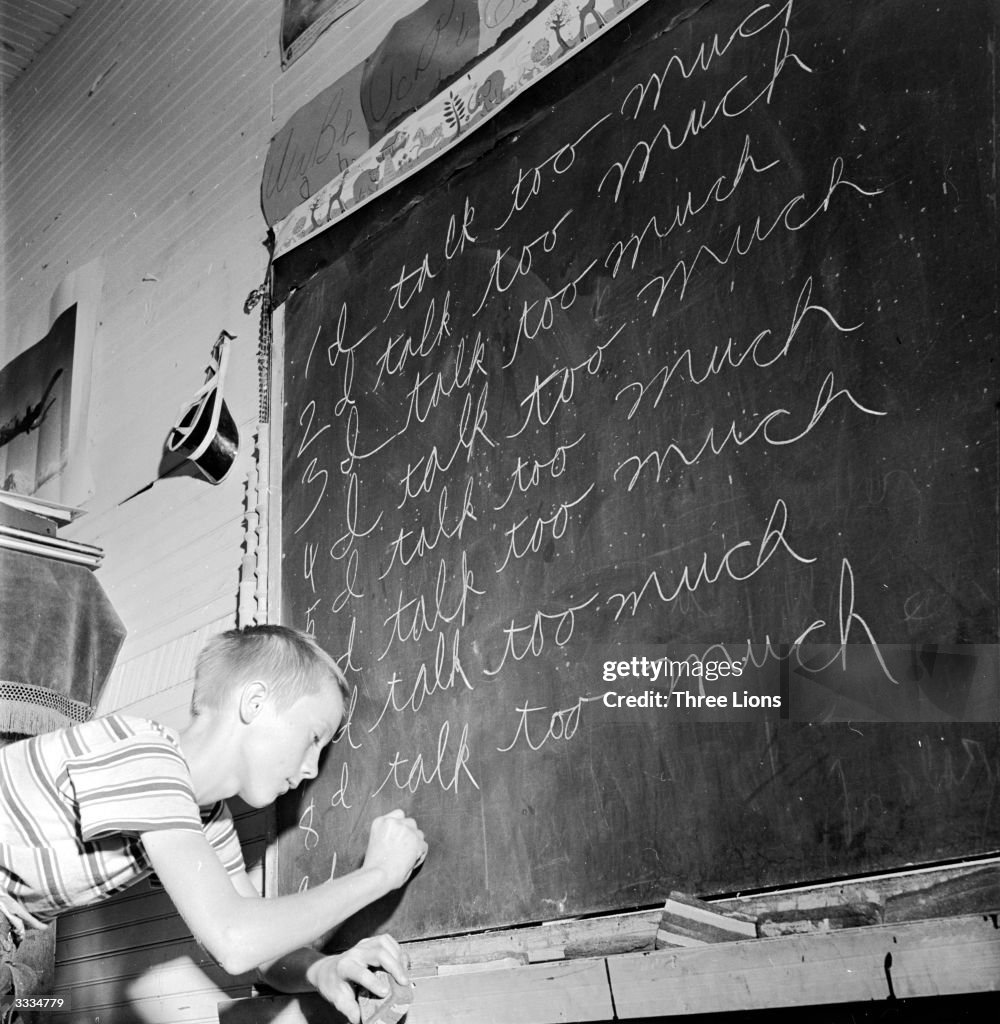 1 I talk too much
2 I talk too much
3 I talk too much
4 I talk too much
5 I talk too much
I talk too much
I talk too much
8 I talk too much
gettyimages
Three Lions
3334779